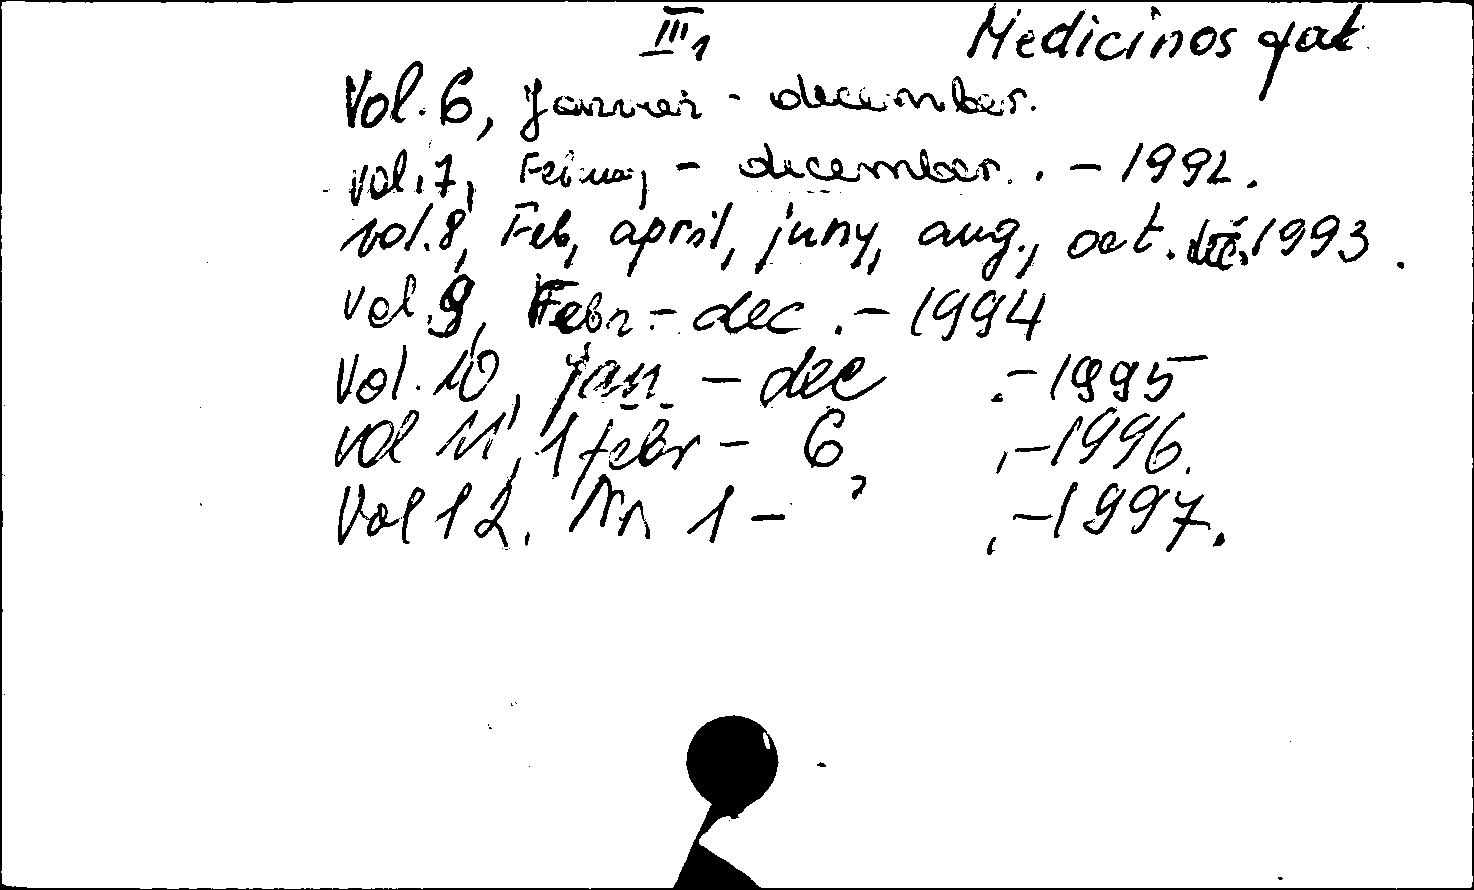 III1 Medicinos
Vol. 6, Januar - december.
vol. 7, Februar - december. - 1992.
vol. 8, Feb, april, juny, aug., oct. dec. 1993.
vol. 9, Febr - dec. - 1994
Vol. 10, jan - dec . - 1995
vol 11, 1 febr - 6, , - 1996.
Vol 12. Nr 1 - , - 1997.